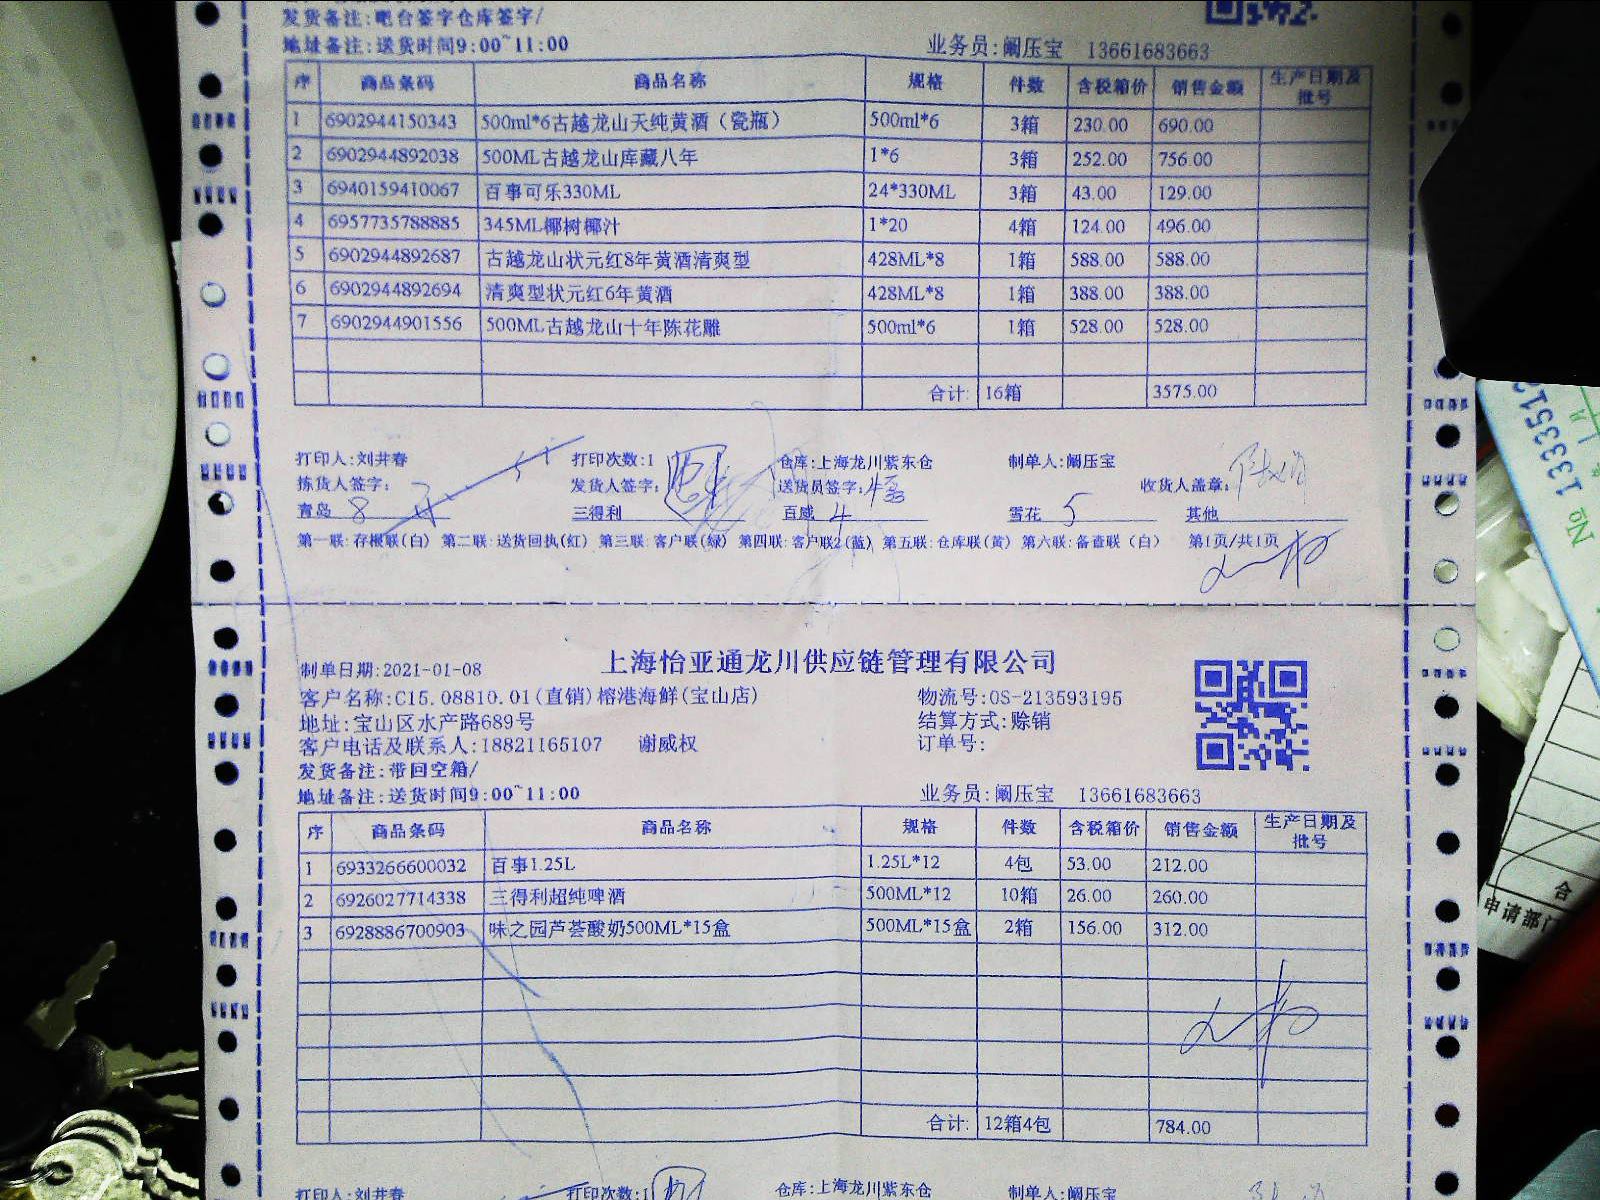 发货备注:吧台签字仓库签字/
地址备注:送货时间9:00~11:00 业务员:阚压宝 13661683663
序 商品条码 商品名称 规格 件数 含税箱价 销售金额 生产日期及批号
1 6902944150343 500ml*6古越龙山天纯黄酒（瓷瓶） 500ml*6 3箱 230.00 690.00
2 6902944892038 500ML古越龙山库藏八年 1*6 3箱 252.00 756.00
3 6940159410067 百事可乐330ML 24*330ML 3箱 43.00 129.00
4 6957735788885 345ML椰树椰汁 1*20 4箱 124.00 496.00
5 6902944892687 古越龙山状元红8年黄酒清爽型 428ML*8 1箱 588.00 588.00
6 6902944892694 清爽型状元红6年黄酒 428ML*8 1箱 388.00 388.00
7 6902944901556 500ML古越龙山十年陈花雕 500ml*6 1箱 528.00 528.00
合计: 16箱 3575.00
打印人:刘井春 打印次数:1 仓库:上海龙川紫东仓 制单人:阚压宝
拣货人签字: 发货人签字: 送货员签字: 收货人盖章:
青岛 8 三得利 百威 4 雪花 5 其他
第一联:存根联(白) 第二联:送货回执(红) 第三联:客户联(绿) 第四联:客户联2(蓝) 第五联:仓库联(黄) 第六联:备查联（白） 第1页/共1页
上海怡亚通龙川供应链管理有限公司
制单日期:2021-01-08
客户名称:C15.08810.01(直销)榕港海鲜(宝山店) 物流号:OS-213593195
地址:宝山区水产路689号 结算方式:赊销
客户电话及联系人:18821165107 谢威权 订单号:
发货备注:带回空箱/
地址备注:送货时间9:00~11:00 业务员:阚压宝 13661683663
序 商品条码 商品名称 规格 件数 含税箱价 销售金额 生产日期及批号
1 6933266600032 百事1.25L 1.25L*12 4包 53.00 212.00
2 6926027714338 三得利超纯啤酒 500ML*12 10箱 26.00 260.00
3 6928886700903 味之园芦荟酸奶500ML*15盒 500ML*15盒 2箱 156.00 312.00
合计: 12箱4包 784.00
打印人:刘井春 打印次数:1 仓库:上海龙川紫东仓 制单人:阚压宝
№ 133351
合
申请部门